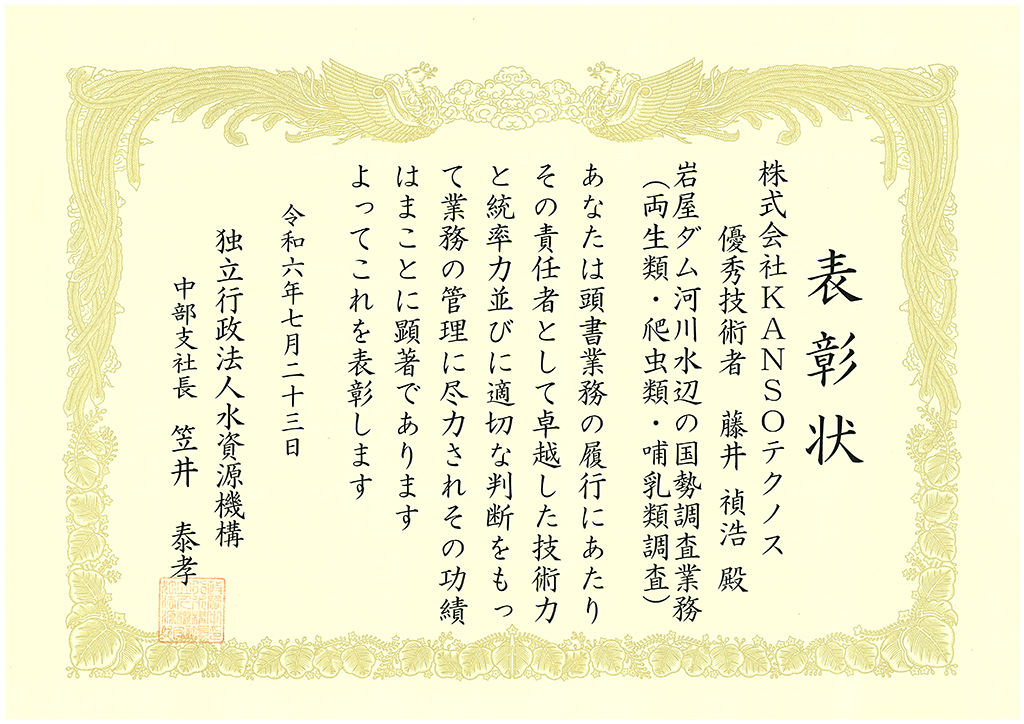 表彰状
株式会社KANSOテクノス
優秀技術者 藤井 禎浩 殿
岩屋ダム河川水辺の国勢調査業務
(両生類・爬虫類・哺乳類調査)
あなたは頭書業務の履行にあたり
その責任者として卓越した技術力
と統率力並びに適切な判断をもっ
て業務の管理に尽力されその功績
はまことに顕著であります
よってこれを表彰します
令和六年七月二十三日
独立行政法人水資源機構
中部支社長 笠井 泰孝